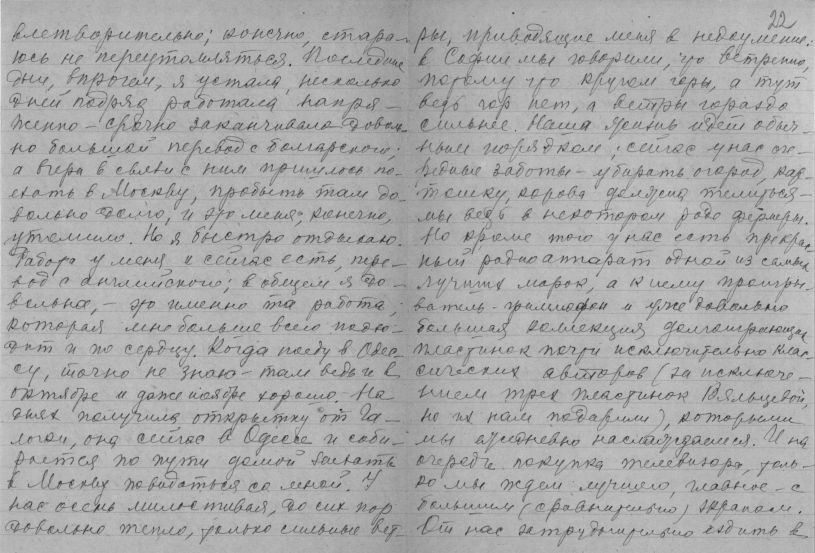 влетворительно; конечно, стара-
юсь не переутомляться. Последние
дни, впрочем, я устала, несколько
дней подряд работала напря-
женно – срочно заканчивала доволь-
но большой перевод с болгарского;
а вчера в связи с ним пришлось по-
ехать в Москву, пробыть там до-
вольно долго, и это меня, конечно,
утомило. Но я быстро отдыхаю.
Работа у меня и сейчас есть, пере-
вод с английского; в общем я до-
вольна, – это именно та работа,
которая мне больше всего подхо-
дит и по сердцу. Когда поеду в Одес-
су, точно не знаю – там ведь и в
октябре и даже ноябре хорошо. На
днях получила открытку от Га-
лочки, она сейчас в Одессе и соби-
рается по пути домой заехать
в Москву повидаться со мной. У
нас осень милостивая, до сих пор
довольно тепло, только сильные вет-
22
ры, приводящие меня в недоумение:
в Софии мы говорили, что ветрено,
потому что кругом горы, а тут
ведь гор нет, а ветры гораздо
сильнее. Наша жизнь идет обыч-
ным порядком, сейчас у нас оче-
редные заботы – убирать огород, кар-
тошку, корова должна телиться –
мы ведь в некотором роде фермеры.
Но кроме того у нас есть прекрас-
ный радиоаппарат одной из самых
лучших марок, а к нему проигры-
ватель – граммофон и уже довольно
большая коллекция долгоиграющих
пластинок почти исключительно клас-
сических авторов (за исключе-
нием трех пластинок Вяльцевой,
но их нам подарили), которыми
мы ежедневно наслаждаемся. И на
очереди покупка телевизора, толь-
ко мы ждем лучшего, главное – с
большим (сравнительно) экраном.
От нас затруднительно ездить в